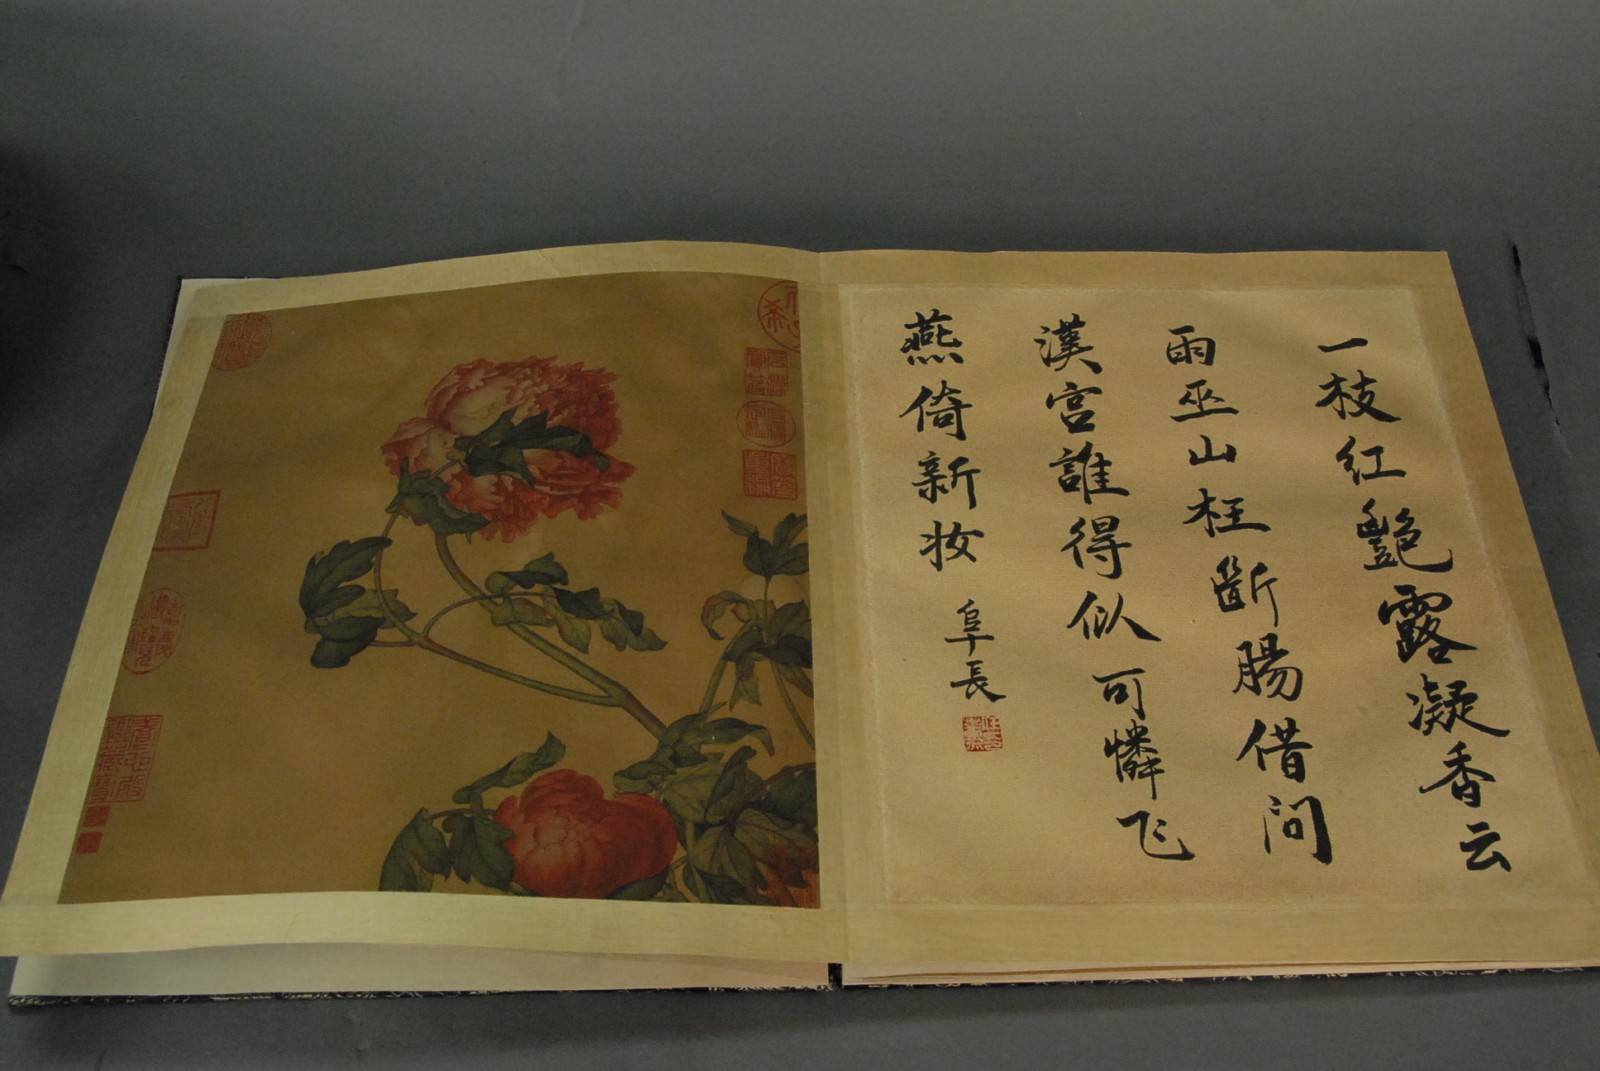 一枝红艶露凝香云
雨巫山枉斷腸借问
漢宫誰得似可憐飞
燕倚新妆
阜長